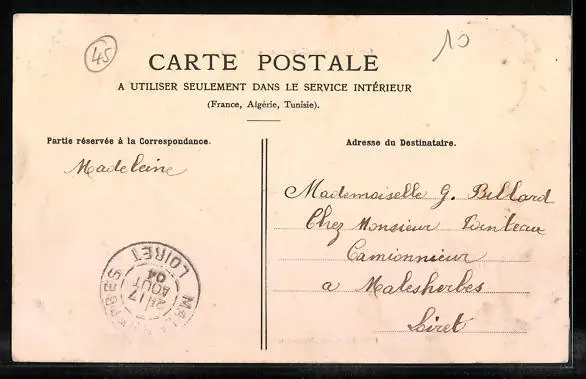 45
10
CARTE POSTALE
A UTILISER SEULEMENT DANS LE SERVICE INTÉRIEUR
(France, Algérie, Tunisie).
Partie réservée à la Correspondance.
Madeleine
Adresse du Destinataire.
Mademoiselle G. Billard
Chez Monsieur Pointeau
Camionnieur
a Malesherbes
Loiret
MALESHERBES
17
AOUT
04
LOIRET